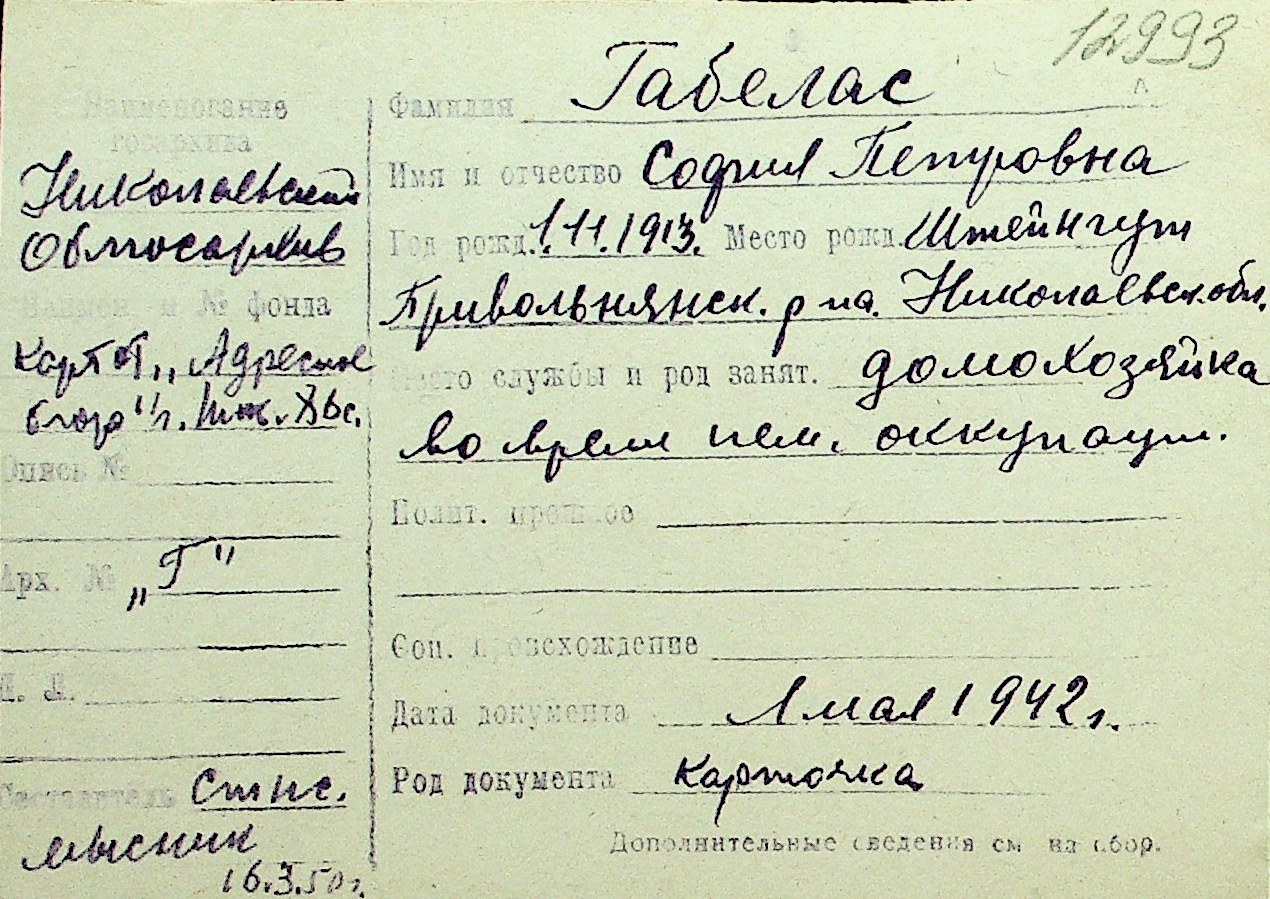 12993
Наименование
госархива
Николаевский
Облгосархив
Наимен и № фонда
Карт от „Адресное
бюро" г.
Опись №
Арх. № „Г"
Л. Л.
Составитель
16.X.50г.
Фамилия Габелас
Имя и отчество София Петровна
Год рожд. 1.11.1913. Место рожд. Штейнгут
Привольнянск. р-на. Николаевск. обл.
Место службы и род занят. домохозяйка
во время нем. оккупации.
Полит. прошлое
Соц. происхождение
Дата документа 1 мая 1942г.
Род документа карточка
Дополнительные сведения см на обор.